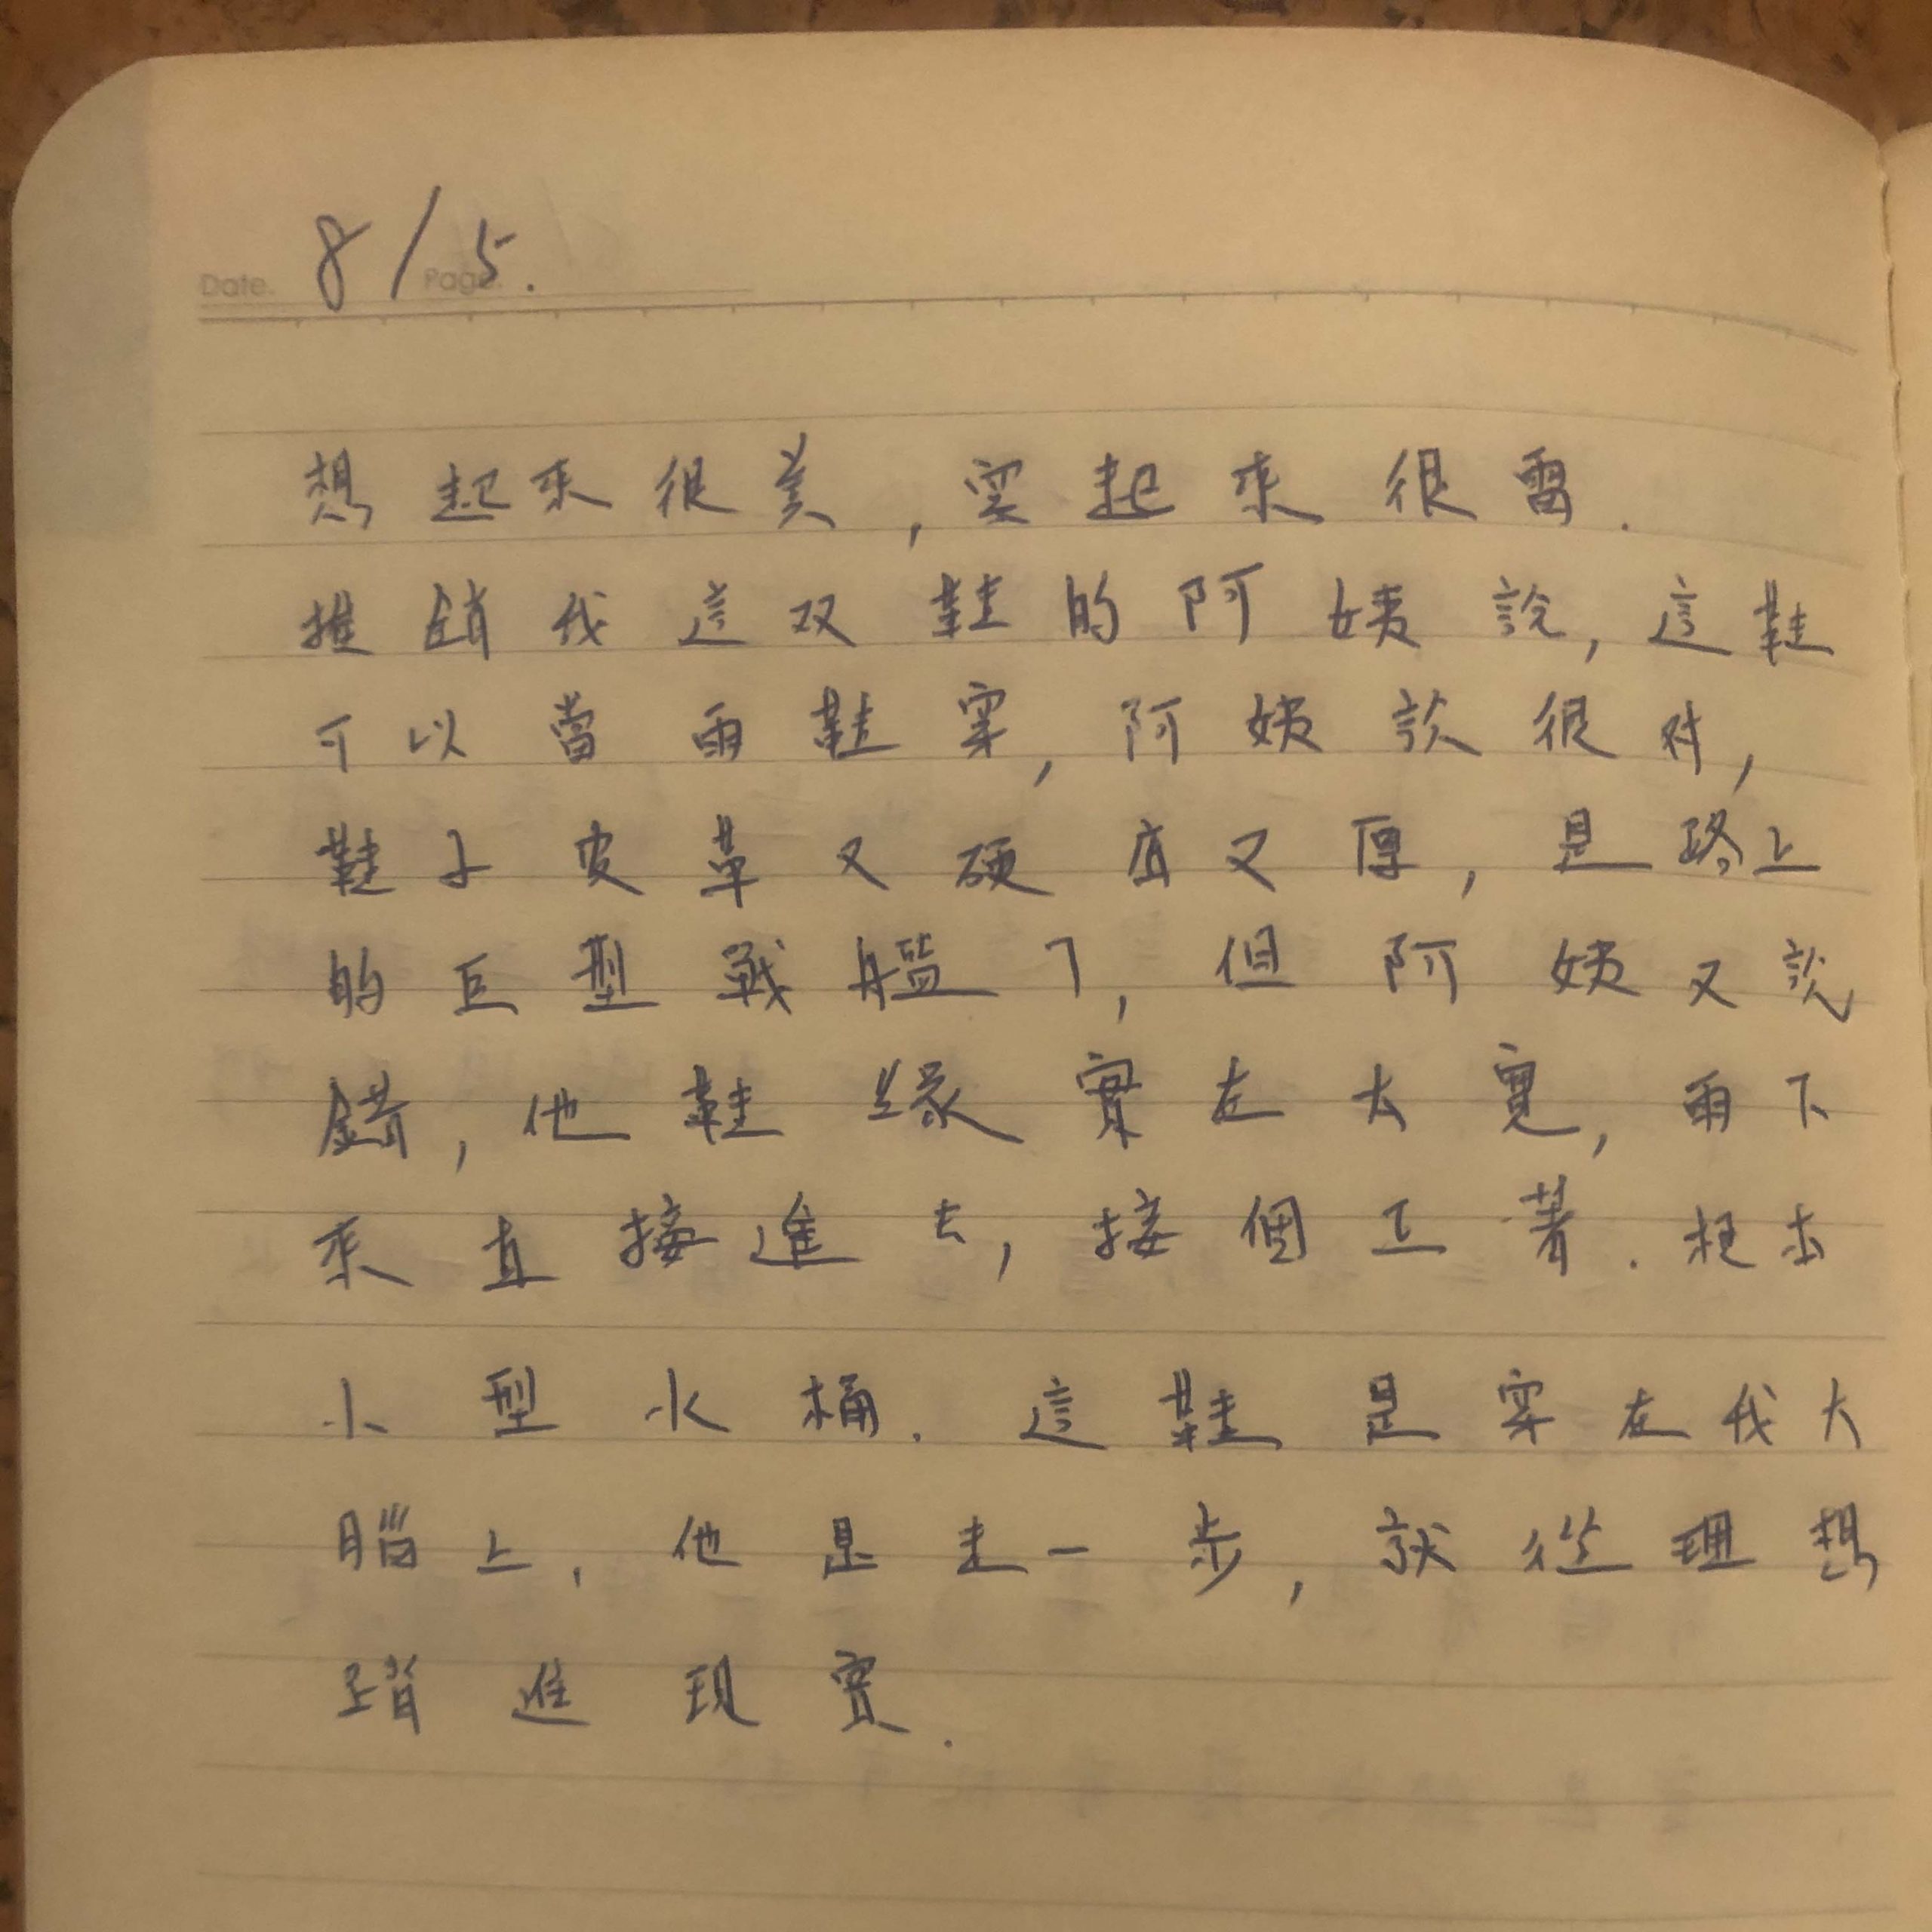 Date. 8/5. Page.
想起來很美,穿起來很雷.
推銷我這双鞋的阿姨說,這鞋
可以當雨鞋穿,阿姨說很对,
鞋子皮革又硬底又厚,是路上
的巨型戰艦了,但阿姨又說
錯,他鞋緣實在太寬,雨下
來直接進去,接個正著.根本
小型水桶.這鞋是穿在我大
腦上,他是走一步,就從理想
踏進現實.